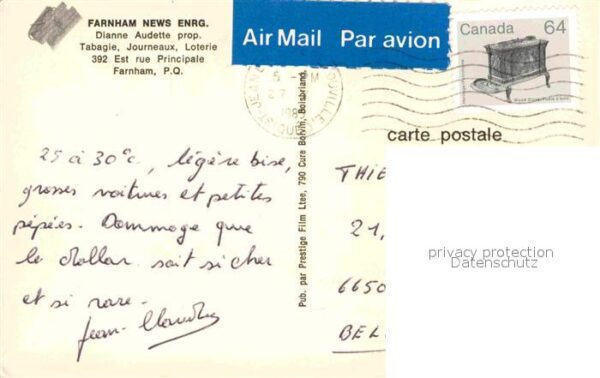 FARNHAM NEWS ENRG.
Dianne Audette prop.
Tabagie, Journeaux, Loterie
392 Est rue Principale
Farnham, P.Q.
Air Mail Par avion
Canada 64
carte postale
25 à 30°c, légère bise,
grosses voitures et petites
pépées. Dommage que
le dollar soit si cher
et si rare.
Jean-Claude
Pub. par Prestige Film Ltee, 790 Cure Boivin, Boisbriand,
THIE
21,
6650
BEL
privacy protection
Datenschutz